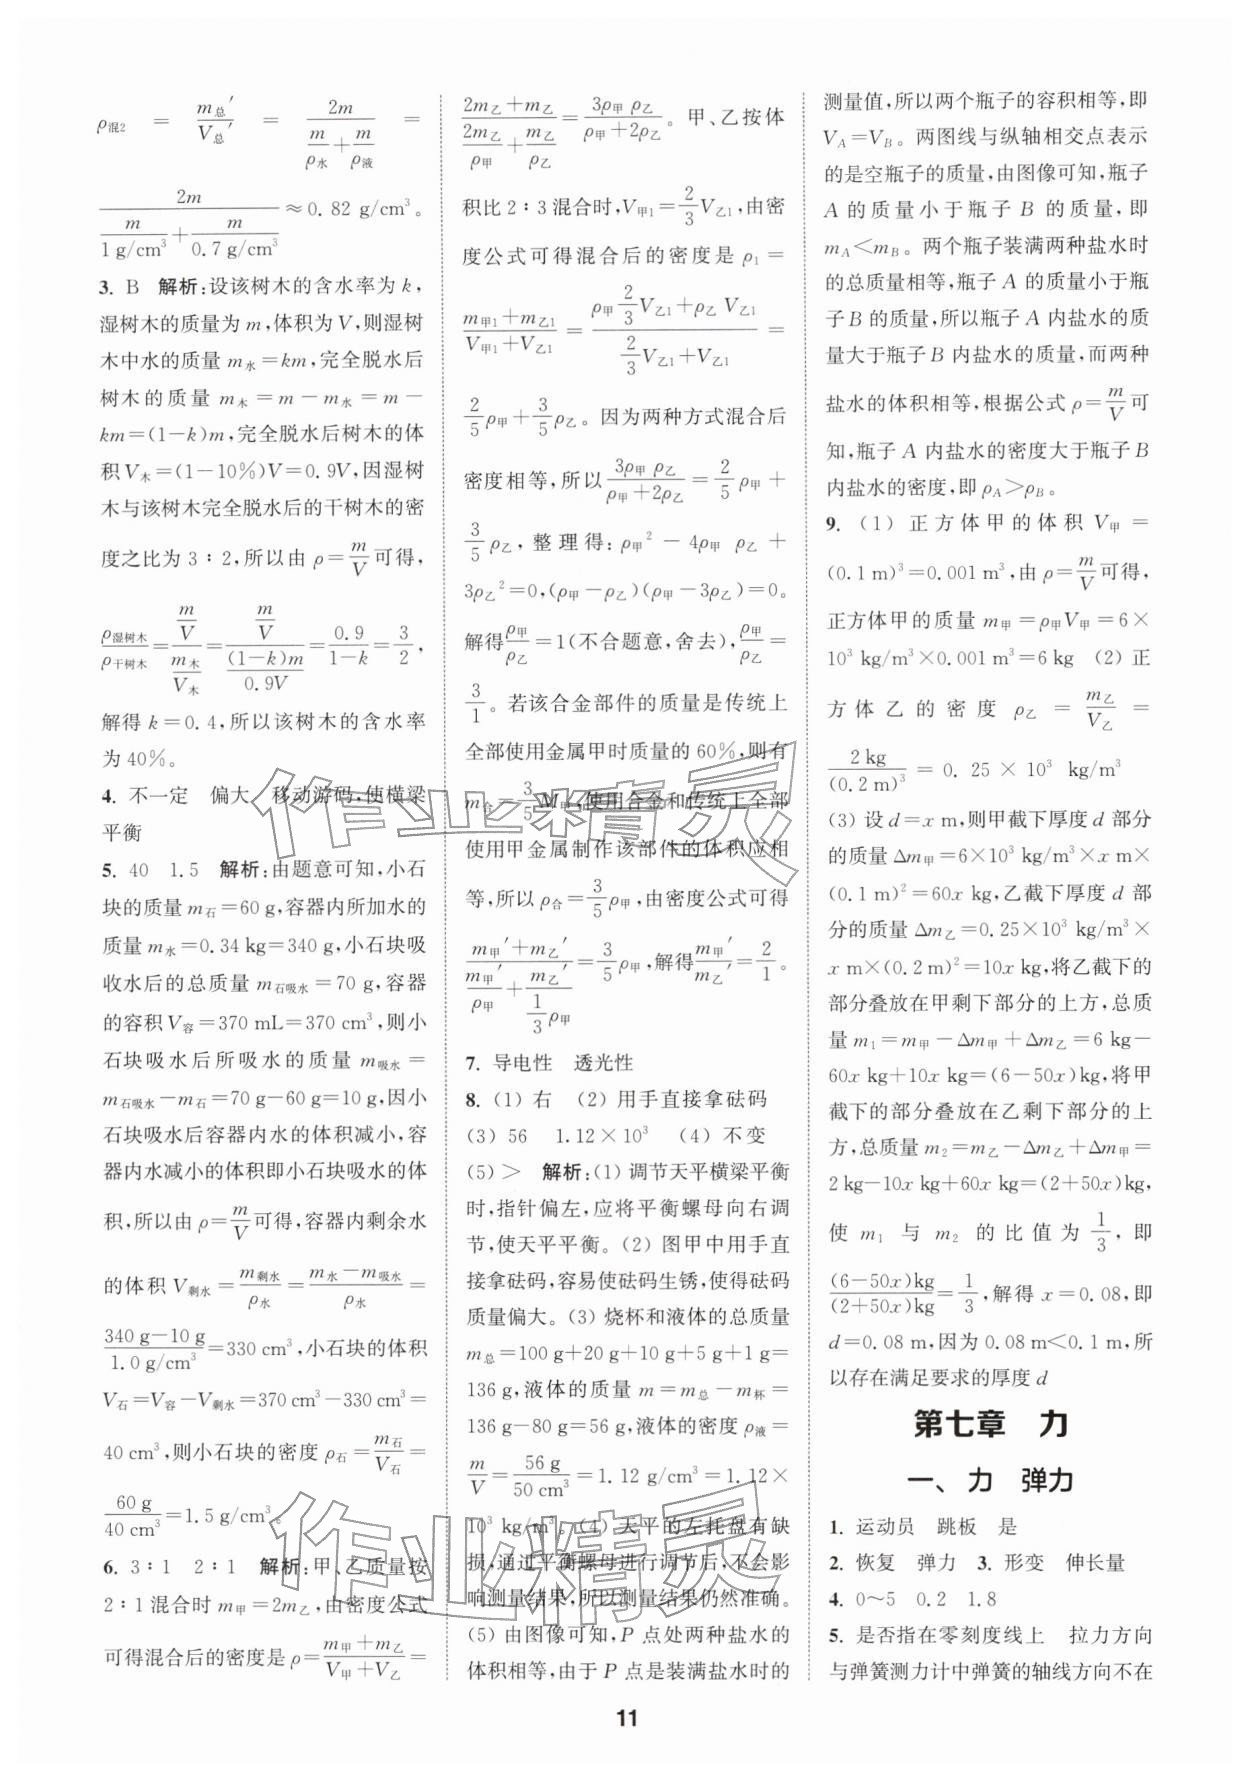 ρ混2 = m总′/V总′ = 2m/(m/ρ水+m/ρ液) =
2m/(m/(1 g/cm³)+m/(0.7 g/cm³))≈0.82 g/cm³。
3. B 解析:设该树木的含水率为 k,
湿树木的质量为 m,体积为 V,则湿树
木中水的质量 m水=km,完全脱水后
树木的质量 m木=m-m水=m-
km=(1-k)m,完全脱水后树木的体
积 V木=(1-10%)V=0.9V,因湿树
木与该树木完全脱水后的干树木的密
度之比为 3∶2,所以由 ρ=m/V可得,
ρ湿树木/ρ干树木=(m/V)/(m木/V木)=(m/V)/((1-k)m/0.9V)=0.9/(1-k)=3/2,
解得 k=0.4,所以该树木的含水率
为 40%。
4. 不一定 偏大 移动游码,使横梁
平衡
5. 40 1.5 解析:由题意可知,小石
块的质量 m石=60 g,容器内所加水的
质量 m水=0.34 kg=340 g,小石块吸
收水后的总质量 m石吸水=70 g,容器
的容积 V容=370 mL=370 cm³,则小
石块吸水后所吸水的质量 m吸水=
m石吸水-m石=70 g-60 g=10 g,因小
石块吸水后容器内水的体积减小,容
器内水减小的体积即小石块吸水的体
积,所以由 ρ=m/V可得,容器内剩余水
的体积 V剩水=m剩水/ρ水=(m水-m吸水)/ρ水=
(340 g-10 g)/(1.0 g/cm³)=330 cm³,小石块的体积
V石=V容-V剩水=370 cm³-330 cm³=
40 cm³,则小石块的密度 ρ石=m石/V石=
60 g/40 cm³=1.5 g/cm³。
6. 3∶1 2∶1 解析:甲、乙质量按
2∶1 混合时 m甲=2m乙,由密度公式
可得混合后的密度是 ρ=(m甲+m乙)/(V甲+V乙)=
(2m乙+m乙)/(2m乙/ρ甲+m乙/ρ乙)=3ρ甲 ρ乙/(ρ甲+2ρ乙)。甲、乙按体
积比 2∶3 混合时,V甲1=2/3V乙1,由密
度公式可得混合后的密度是 ρ1=
(m甲1+m乙1)/(V甲1+V乙1)=(ρ甲 2/3V乙1+ρ乙 V乙1)/(2/3V乙1+V乙1)=
2/5ρ甲+3/5ρ乙。因为两种方式混合后
密度相等,所以3ρ甲 ρ乙/(ρ甲+2ρ乙)=2/5ρ甲+
3/5ρ乙,整理得:ρ甲²-4ρ甲 ρ乙+
3ρ乙²=0,(ρ甲-ρ乙)(ρ甲-3ρ乙)=0。
解得ρ甲/ρ乙=1(不合题意,舍去),ρ甲/ρ乙=
3/1。若该合金部件的质量是传统上
全部使用金属甲时质量的 60%,则有
m合=3/5M甲,使用合金和传统上全部
使用甲金属制作该部件的体积应相
等,所以 ρ合=3/5ρ甲,由密度公式可得
(m甲′+m乙′)/(m甲′/ρ甲+m乙′/(1/3ρ甲))=3/5ρ甲,解得m甲′/m乙′=2/1。
7. 导电性 透光性
8. (1) 右 (2) 用手直接拿砝码
(3) 56 1.12×10³ (4) 不变
(5) > 解析:(1) 调节天平横梁平衡
时,指针偏左,应将平衡螺母向右调
节,使天平平衡。(2) 图甲中用手直
接拿砝码,容易使砝码生锈,使得砝码
质量偏大。(3) 烧杯和液体的总质量
m总=100 g+20 g+10 g+5 g+1 g=
136 g,液体的质量 m=m总-m杯=
136 g-80 g=56 g,液体的密度 ρ液=
m/V=56 g/50 cm³=1.12 g/cm³=1.12×
10³ kg/m³。(4) 天平的左托盘有缺
损,通过平衡螺母进行调节后,不会影
响测量结果,所以测量结果仍然准确。
(5) 由图像可知,P 点处两种盐水的
体积相等,由于 P 点是装满盐水时的
测量值,所以两个瓶子的容积相等,即
VA=VB。两图线与纵轴相交点表示
的是空瓶子的质量,由图像可知,瓶子
A 的质量小于瓶子 B 的质量,即
mA<mB。两个瓶子装满两种盐水时
的总质量相等,瓶子 A 的质量小于瓶
子 B 的质量,所以瓶子 A 内盐水的质
量大于瓶子 B 内盐水的质量,而两种
盐水的体积相等,根据公式 ρ=m/V可
知,瓶子 A 内盐水的密度大于瓶子 B
内盐水的密度,即 ρA>ρB。
9. (1) 正方体甲的体积 V甲=
(0.1 m)³=0.001 m³,由 ρ=m/V可得,
正方体甲的质量 m甲=ρ甲V甲=6×
10³ kg/m³×0.001 m³=6 kg (2) 正
方体乙的密度 ρ乙=m乙/V乙=
2 kg/(0.2 m)³=0.25×10³ kg/m³
(3) 设 d=x m,则甲截下厚度 d 部分
的质量 Δm甲=6×10³ kg/m³×x m×
(0.1 m)²=60x kg,乙截下厚度 d 部
分的质量 Δm乙=0.25×10³ kg/m³×
x m×(0.2 m)²=10x kg,将乙截下的
部分叠放在甲剩下部分的上方,总质
量 m1=m甲-Δm甲+Δm乙=6 kg-
60x kg+10x kg=(6-50x)kg,将甲
截下的部分叠放在乙剩下部分的上
方,总质量 m2=m乙-Δm乙+Δm甲=
2 kg-10x kg+60x kg=(2+50x)kg,
使 m1 与 m2 的比值为 1/3,即
(6-50x)kg/(2+50x)kg=1/3,解得 x=0.08,即
d=0.08 m,因为 0.08 m<0.1 m,所
以存在满足要求的厚度 d
第七章 力
一、力 弹力
1. 运动员 跳板 是
2. 恢复 弹力 3. 形变 伸长量
4. 0～5 0.2 1.8
5. 是否指在零刻度线上 拉力方向
与弹簧测力计中弹簧的轴线方向不在
11
作业精灵
作业精灵